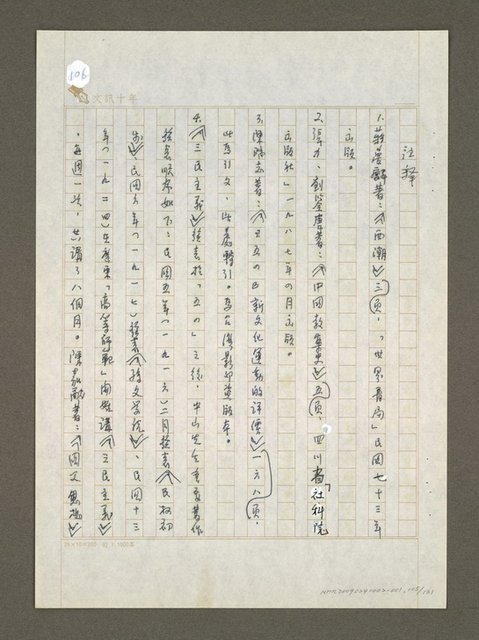 106
文訊十年
注釋
1、蔣夢麟著：《西潮》三頁，「世界書局」民國七十三年
出版。
2、張力、劉鑒唐著：《中國教案史》五頁，四川省「社科院
出版社」一九八七年四月出版。
3、陳端志著：《五四新文化運動的評價》一六八頁，
此為引文，此處轉引。為台灣影印舊版本。
4、《三民主義》發表於「五四」之後，中山先生重要著作
發表順序如下：民國五年（一九一六）二月發表《民權初
步》、民國六年（一九一七）發表《孫文學說》、民國十三
年（一九二四）在廣東「高等師範」開始講《三民主義》
，每週一次，共講了八個月。陳家敵著：《國父思想》
24×10=240
NMTL20090240002-001, 105/121